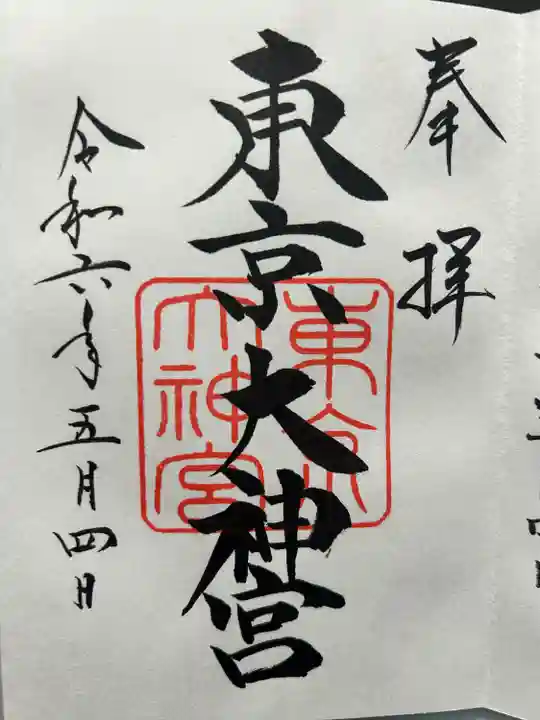 奉拝
東京大神宮
東京
大神宮
令和六年五月四日